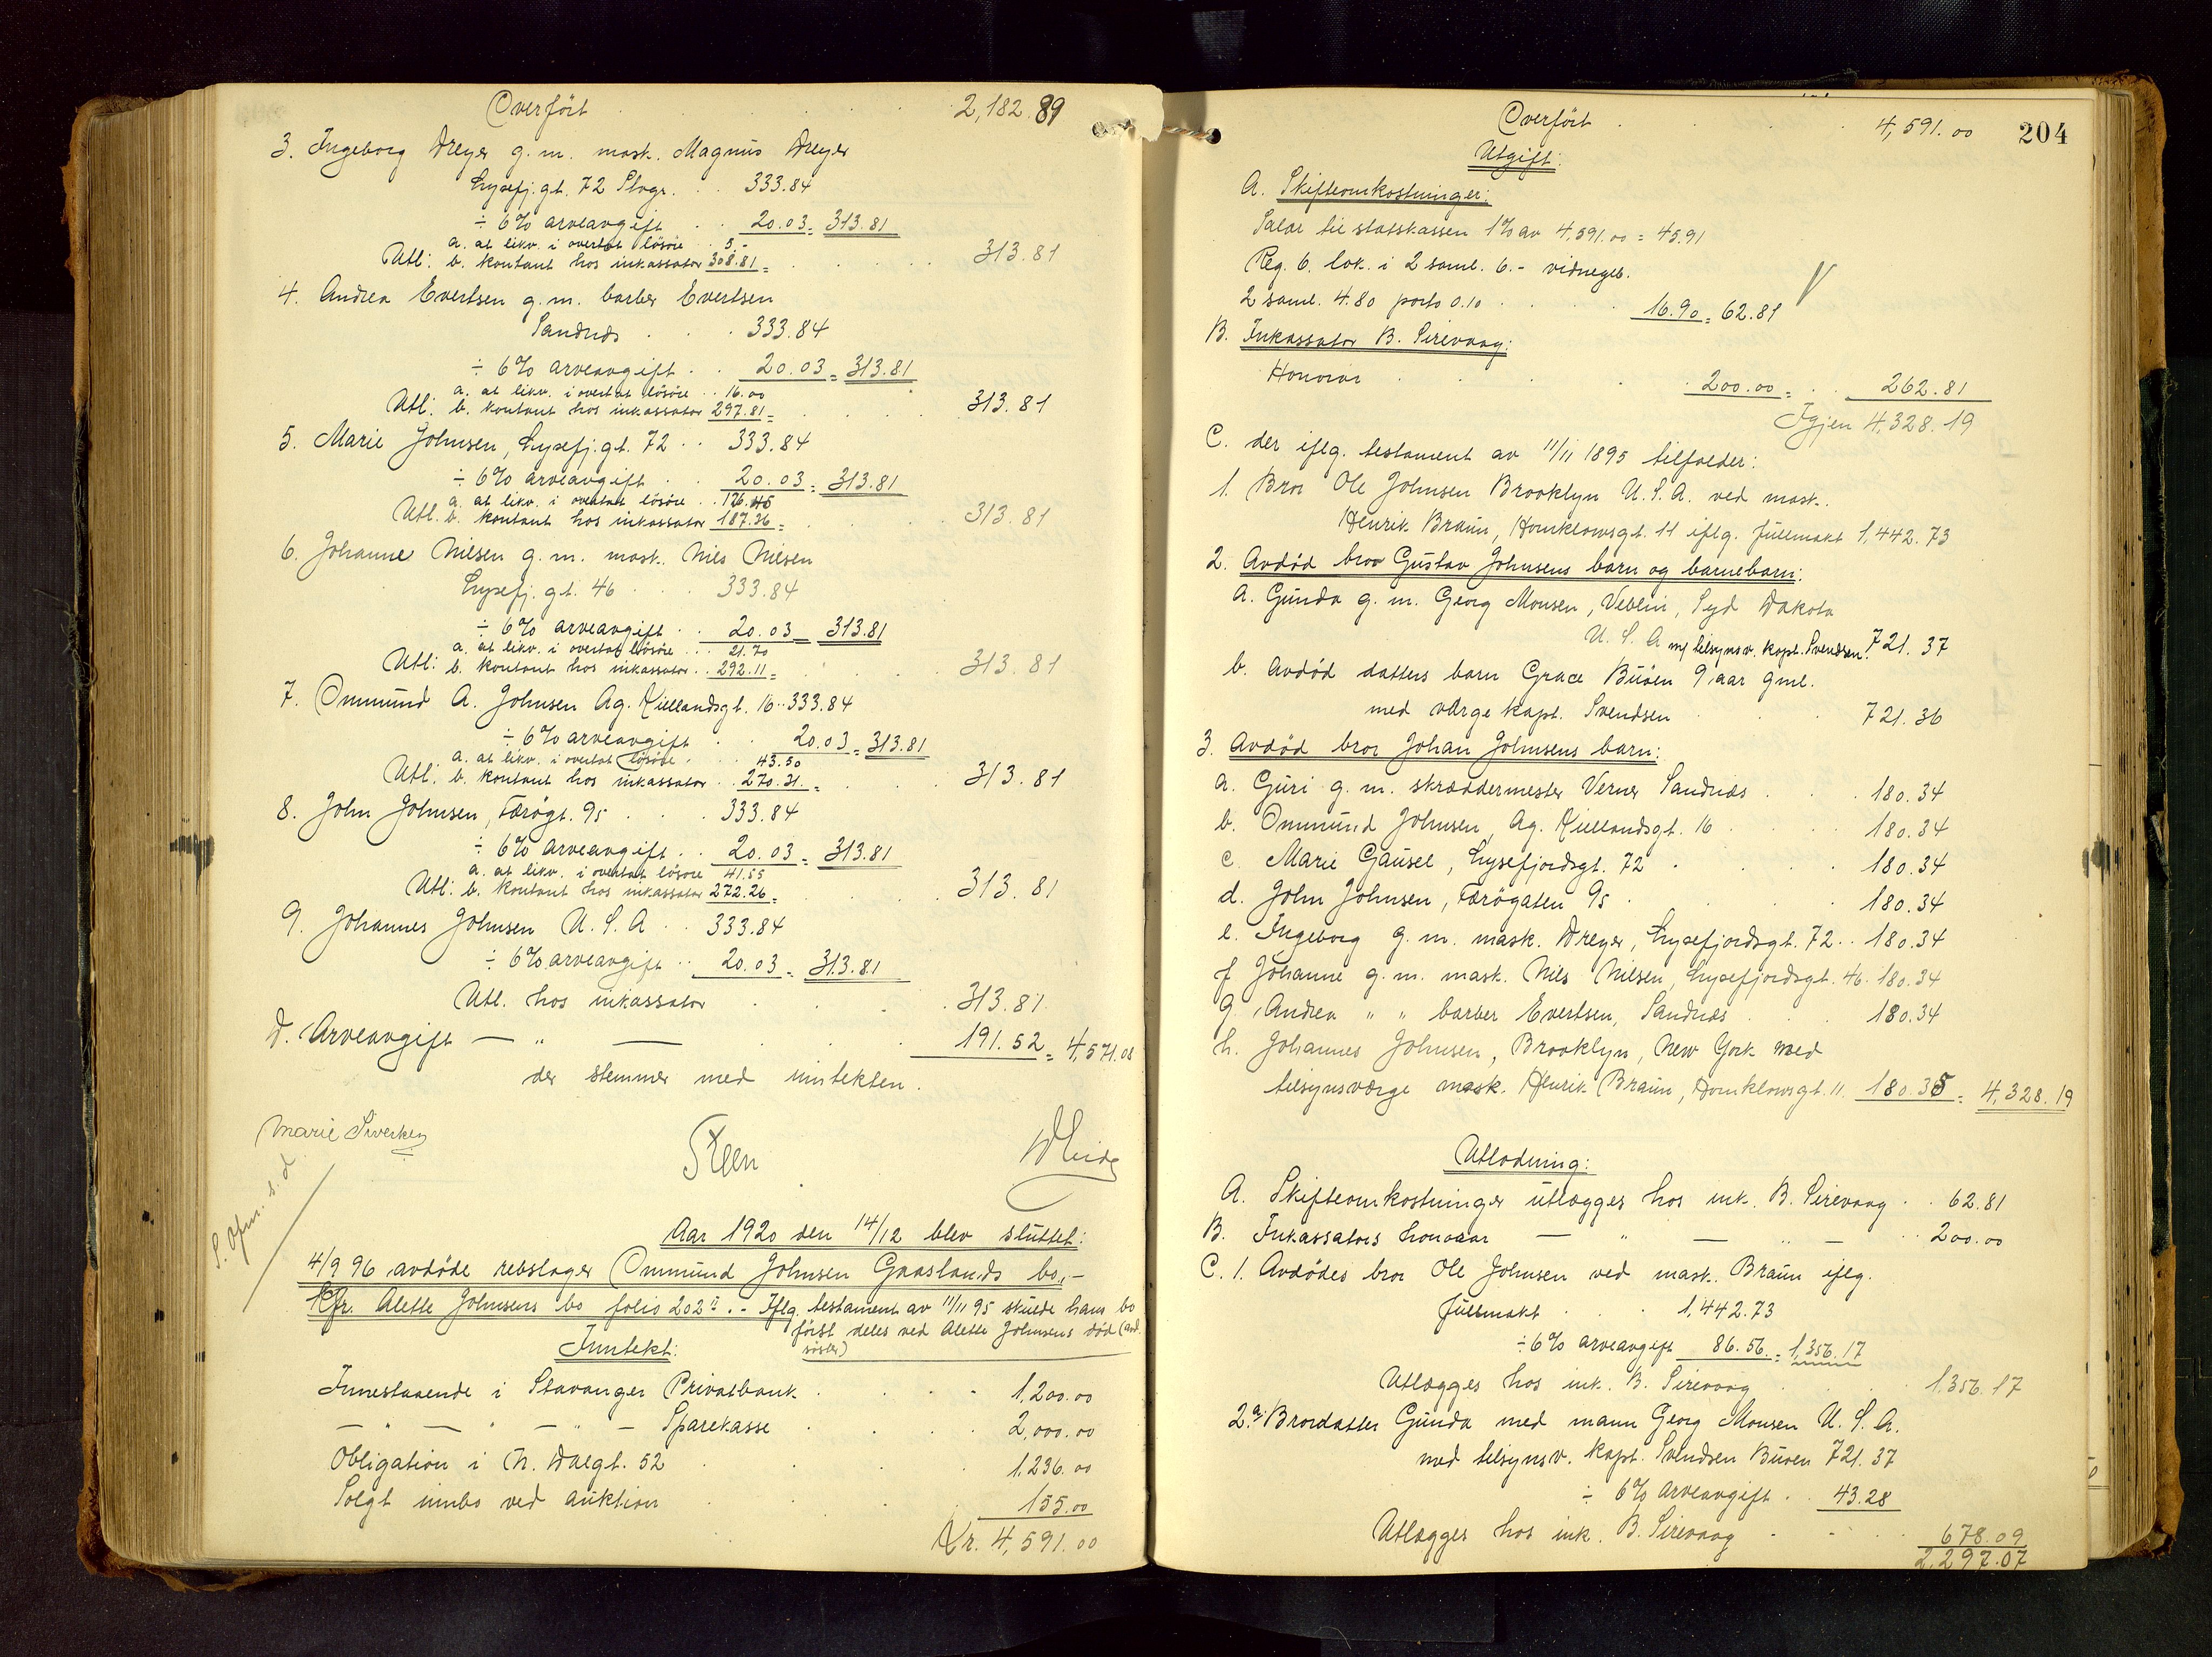 Overført 2,182.89
3. Ingeborg Dreyer g.m. mask. Magnus Dreyer
Lysefj.gt. 72 Stvgr. 333.84
÷ 6% arveavgift 20.03 = 313.81
a. at likv. i overtat lösöre 5.-
Utl: b. kontant hos inkassator 308.81 = 313.81
4. Andrea Evertsen g.m. barber Evertsen
Sandnes 333.84
÷ 6% arveavgift 20.03 = 313.81
a. at likv. i overtat lösöre 16.00
Utl: b. kontant hos inkassator 297.81 = 313.81
5. Marie Johnsen, Lysefj.gt. 72 333.84
÷ 6% arveavgift 20.03 = 313.81
a. at likv. i overtat lösöre 126.45
Utl. b. kontant hos inkassator 187.36 = 313.81
6. Johanne Nilsen g.m. mask. Nils Nilsen
Lysefj.gt. 46 333.84
÷ 6% arveavgift 20.03 = 313.81
a. at likv. i overtat lösöre 21.70
Utl: b. kontant hos inkassator 292.11 = 313.81
7. Ommund A. Johnsen Ag. Kiellandsgt. 16 333.84
÷ 6% arveavgift 20.03 = 313.81
a. at likv. i overtat lösöre 43.50
Utl: b. kontant hos inkassator 270.31 = 313.81
8. John Johnsen, Færøgt. 95 333.84
÷ 6% arveavgift 20.03 = 313.81
a. at likv. i overtat lösöre 41.55
Utl: b. kontant hos inkassator 272.26 = 313.81
9. Johannes Johnsen U.S.A 333.84
÷ 6% arveavgift 20.03 = 313.81
Utl. hos inkassator 313.81
D. Arveavgift — " — 191.52 = 4,571.08
der stemmer med inntekten.
Marie Siverken
Steen
Aar 1920 den 14/12 blev sluttet:
4/9 96 avdøde rebslager Ommund Johnsen Gaaslands bo,-
Kfr. Alette Johnsens bo folio 202 .- Iflg. testament av 11/11 95 skulde hans bo
først deles ved Alette Johnsens død (avd.
søster)
Inntekt:
Innestaaende i Stavanger Privatbank 1,200.00
— " — " — " — Sparekasse 2,000.00
Obligation i N. Dalgt. 52 1,236.00
Solgt innbo ved auktion 155.00
Kr. 4,591.00
Overført 4,591.00 204
Utgift:
A. Skifteomkostninger:
Salær til statskassen 1% av 4,591.00 = 45.91
Reg. 6. lok. i 2 saml. 6.- vidnegeb.
2 saml. 4.80 porto 0.10 16.90 = 62.81
B. Inkassator B. Sirevaag:
Honorar 200.00 = 262.81
Igjen 4,328.19
C. der iflg. testament av 11/11 1895 tilfalder:
1. Bror Ole Johnsen Brooklyn U.S.A. ved mask.
Henrik Braun, Homklowsgt. 11 iflg. fullmakt 1,442.73
2. Avdød bror Gustav Johnsens barn og barnebarn:
a. Gunda g.m. Georg Monsen, Veblin, Syd Dakota
U.S.A. m/ tilsynsv. kapt. Svendsen 721.37
b. Avdød datters barn Grace Buöen 9 aar gml.
med værge kapt. Svendsen 721.36
3. Avdød bror Johan Johnsens barn:
a. Guri g.m. skræddermester Verner Sandnes 180.34
b. Ommund Johnsen, Ag. Kiellandsgt. 16 180.34
c. Marie Gausel, Lysefjordsgt. 72 180.34
d. John Johnsen, Færøgaten 95 180.34
e. Ingeborg g.m. mask. Dreyer, Lysefjordsgt. 72 180.34
f Johanne g.m. mask. Nils Nilsen, Lysefjordsgt. 46. 180.34
g. Andrea " " barber Evertsen, Sandnes 180.34
h. Johannes Johnsen, Brooklyn, New York med
tilsynsværge mask. Henrik Braun, Homklowsgt. 11. 180.35 = 4,328.19
Utlodning:
A. Skifteomkostninger utlægges hos ink. B. Sirevaag 62.81
B. Inkassators honorar — " — " — 200.00
C. 1. Avdødes bror Ole Johnsen ved mask. Braun iflg.
fullmakt 1,442.73
÷ 6% arveavgift 86.56 = 1,356.17
Utlægges hos ink. B. Sirevaag 1,356.17
2 a. Brordatter Gunda med mann Georg Monsen U.S.A.
med tilsynsv. kapt. Svendsen Buöen 721.37
÷ 6% arveavgift 43.28
Utlægges hos ink. B. Sirevaag 678.09
2,297.07